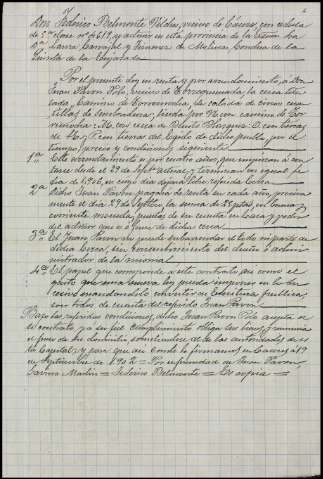 Don Federico Belmonte Valdés, vecino de Cáceres, con cedula
de clase nº 4619, y admor en esta provincia de la Exma Sra
Dª Maria Carvajal y Jimenez de Molina, Condesa de la
Quinta de la Enjarada
Por el presente doy en renta y por arrendamiento, a Don
Juan Pavon Polo, vecino de Torrequemada, la cerca titu-
lada, Camino de Torremocha, la cabida de
tillas de sembradura, linda por N. con camino de To-
rremocha: M. con cerca de O. con tierras
de y P. con tierras del Egido de dicho pueblo, por el
tiempo, precio y condiciones siguientes
1ª Este arrendamiento es por cuatro años, que empiezan á con-
tarse desde el 29 de Sepbre actual y terminan en igual fe-
cha de 1906, en cuyo dia dejará libre referida Cerca
2ª Dicho Juan Pavon, pagará de renta en cada año, precisa-
mente el dia 29 de Septbre, la suma de pesetas en buena y
corriente moneda, puestas de su cuenta en casa y poder
del admor que es ó fuere de dicha cerca
3ª El Juan Pavon no puede subarrendar el todo ni parte de
dicha cerca, sin consentimiento del dueño ó admi-
nistrador de la misma
4ª El papel que corresponde a este contrato asi como el
gasto que
cuando este convenio á escritura publica,
son todos de cuenta del repetido Juan Pavon
Bajo las referidas condiciones, dicho Juan Pavon Polo acepta es-
te contrato y a su fiel cumplimiento obliga sus bienes, y renuncia
el fuero de su domicilio, sometiendose al de las autoridades de es-
ta Capital; y para que asi conste lo firmamos en Cáceres á 19
de Septiembre de 1902 = Por enfermedad de Juan Pavon
Martin = Federico Belmonte = Es copia =